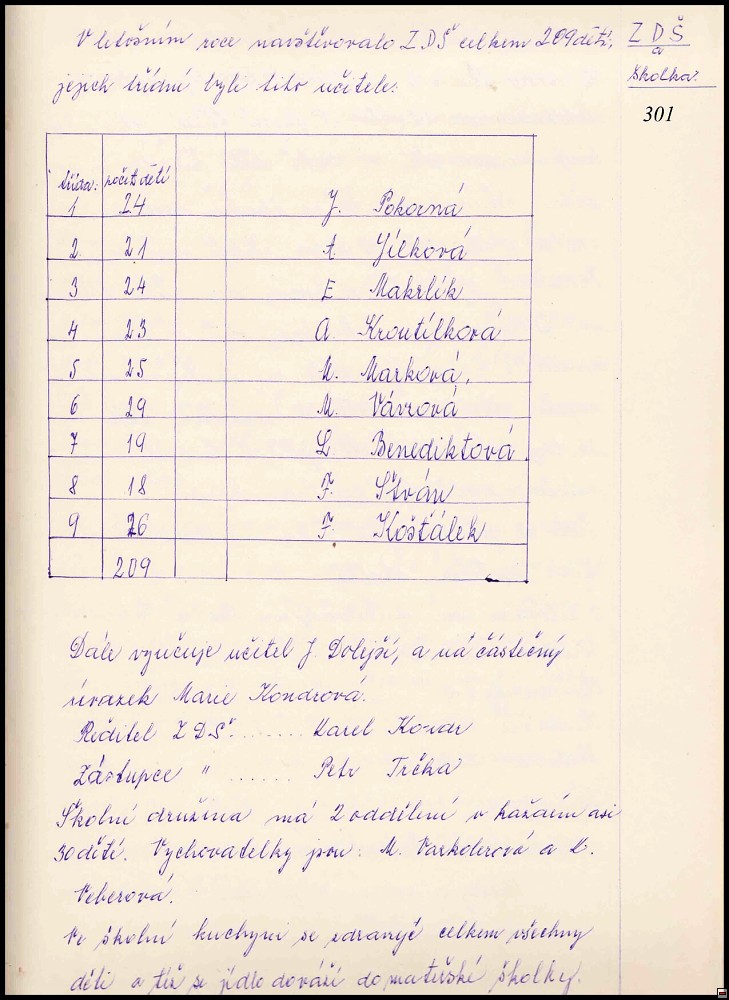 V letošním roce navštěvovalo ZDŠ celkem 209 dětí,
jejich třídní byli tito učitelé:
ZDŠ
a
školka.
301
třída: počet dětí
1 24 J. Pokorná
2 21 A Jílková
3 24 E Makrlík
4 23 A. Kroutílková
5 25 M. Marková,
6 29 M. Vávrová
7 19 L Benediktová.
8 18 F. Štván
9 26 F. Košťálek
209
Dále vyučuje učitel J. Dolejší, a na částečný
úvazek Marie Kondrová.
Ředitel ZDŠ. ....... Karel Kovar
Zástupce " ...... Petr Trčka
Školní družina má 2 oddělení v každém asi
30 dětí. Vychovatelky jsou: M. a
Veberová.
Ve školní kuchyni se celkem všechny
děti a též se jídlo dováží do mateřské školky.